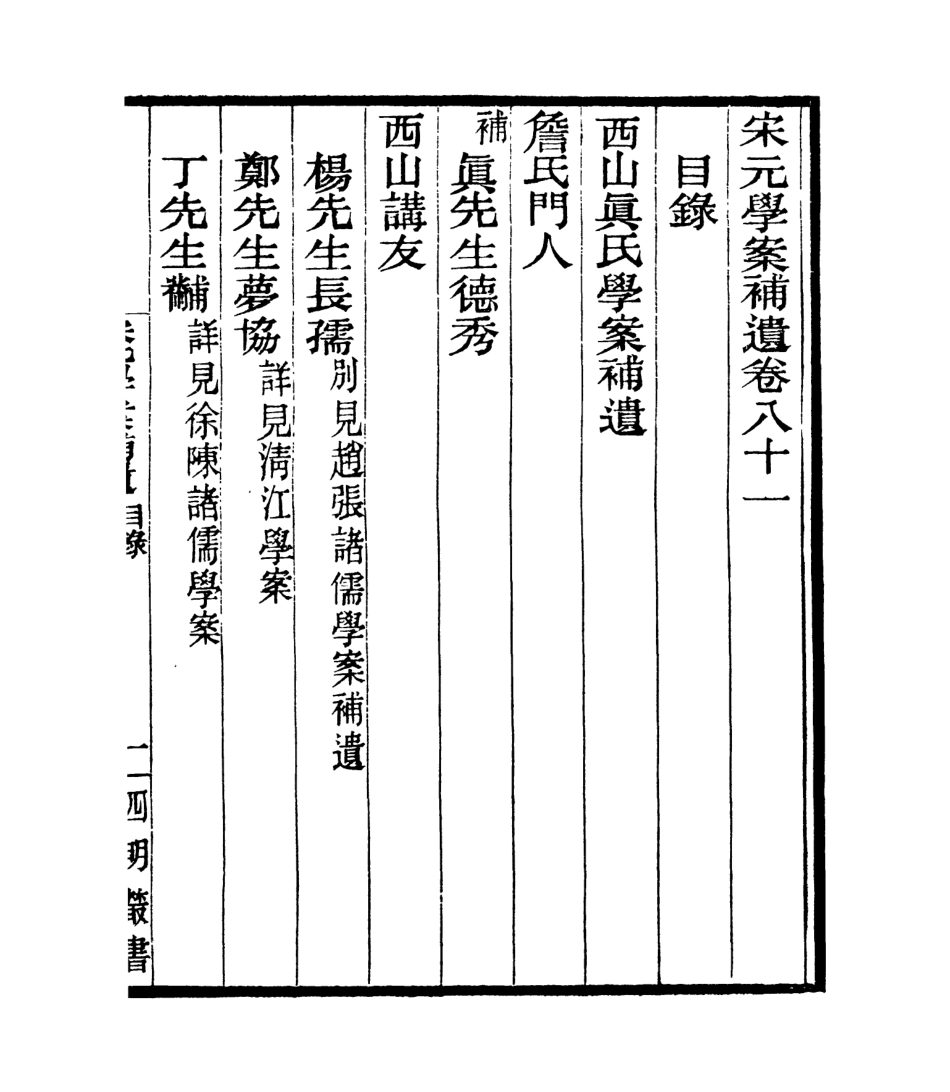 宋元學案補遺卷八十一
目錄
西山眞氏學案補遺
詹氏門人
補眞先生德秀
西山講友
楊先生長孺別見趙張諸儒學案補遺
鄭先生夢協詳見淸江學案
丁先生黼詳見徐陳諸儒學案
目錄
四明叢書